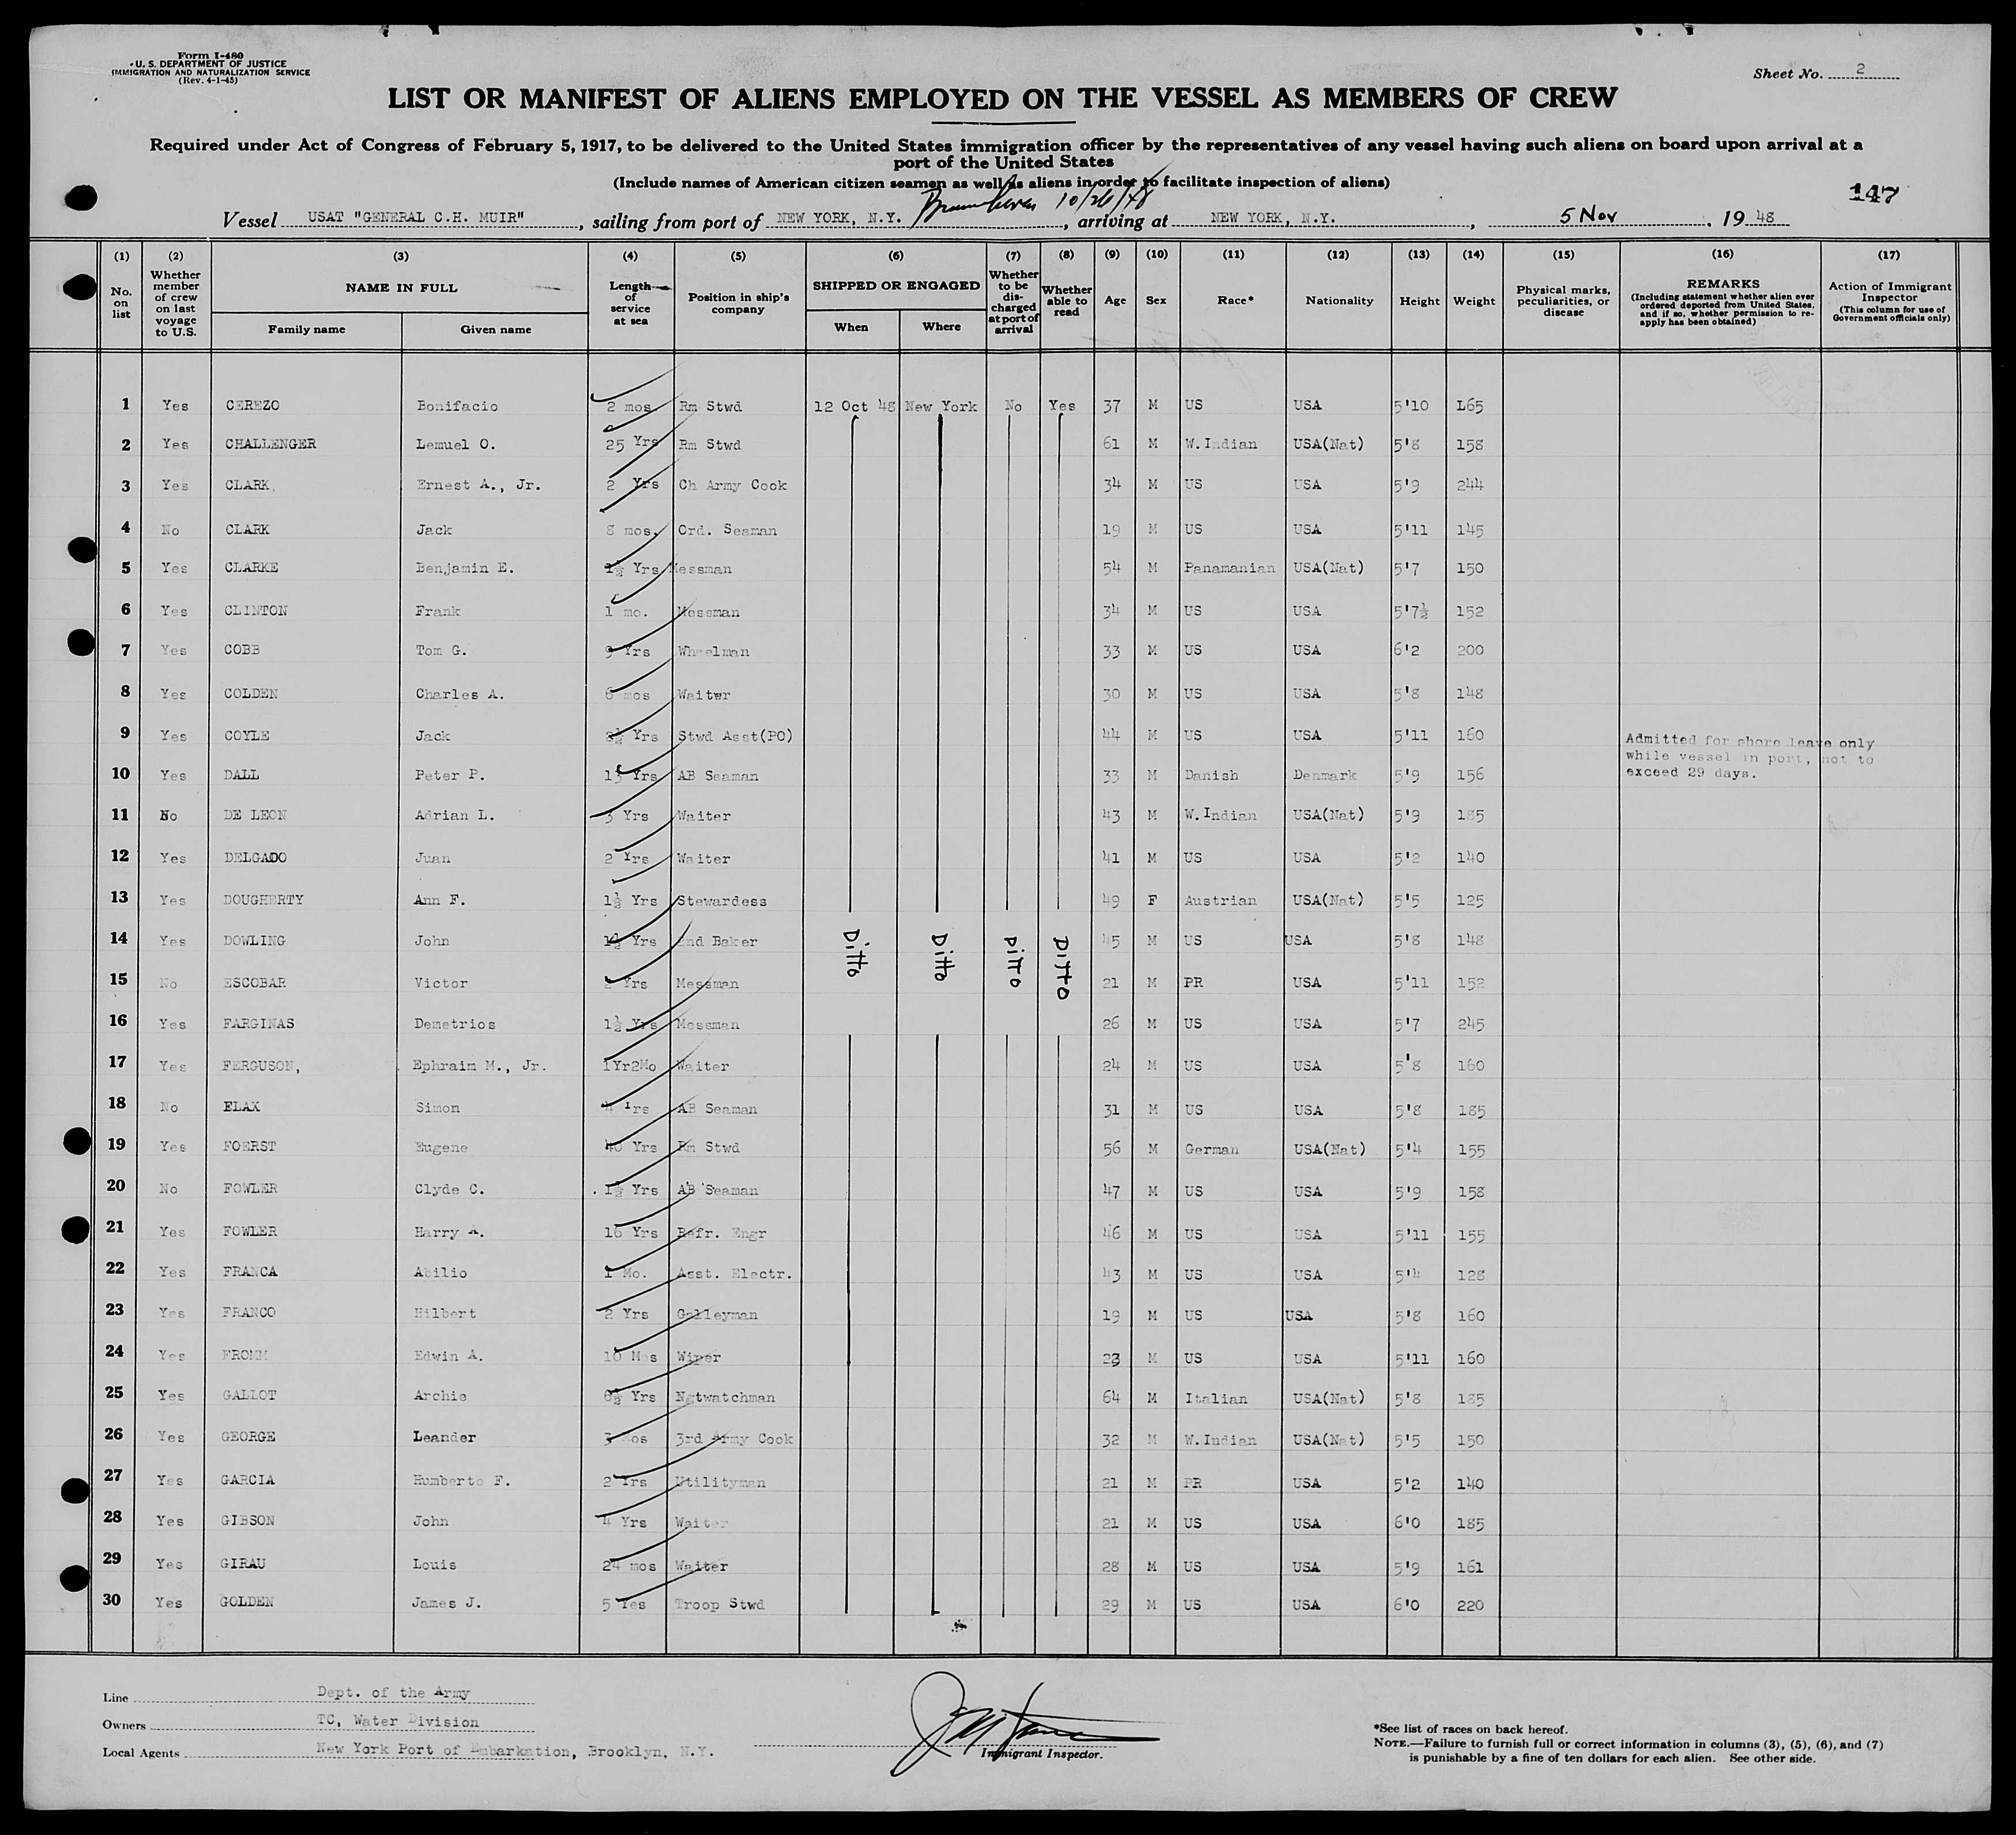 Form I-480
U. S. DEPARTMENT OF JUSTICE
IMMIGRATION AND NATURALIZATION SERVICE
(Rev. 4-1-45)
Sheet No. 2
LIST OR MANIFEST OF ALIENS EMPLOYED ON THE VESSEL AS MEMBERS OF CREW
Required under Act of Congress of February 5, 1917, to be delivered to the United States immigration officer by the representatives of any vessel having such aliens on board upon arrival at a
port of the United States
(Include names of American citizen seamen as well as aliens in order to facilitate inspection of aliens)
147
Vessel USAT "GENERAL C.H. MUIR", sailing from port of NEW YORK, N.Y. 10/26/48, arriving at NEW YORK, N.Y., 5 Nov, 1948
(1) (2) (3) (4) (5) (6) (7) (8) (9) (10) (11) (12) (13) (14) (15) (16) (17)
No. on list
Whether member of crew on last voyage to U.S.
NAME IN FULL
Family name
Given name
Length of service at sea
Position in ship's company
SHIPPED OR ENGAGED
When
Where
Whether to be discharged at port of arrival
Whether able to read
Age
Sex
Race*
Nationality
Height
Weight
Physical marks, peculiarities, or disease
REMARKS
(Including statement whether alien ever ordered deported from United States, and if so, whether permission to re-apply has been obtained)
Action of Immigrant Inspector
(This column for use of Government officials only)
1 Yes CEREZO Bonifacio 2 mos. Rm Stwd 12 Oct 48 New York No Yes 37 M US USA 5'10 L65
2 Yes CHALLENGER Lemuel O. 25 Yrs Rm Stwd 61 M W.Indian USA(Nat) 5'8 158
3 Yes CLARK, Ernest A., Jr. 2 Yrs Ch Army Cook 34 M US USA 5'9 244
4 No CLARK Jack 8 mos. Ord. Seaman 19 M US USA 5'11 145
5 Yes CLARKE Benjamin E. 1½ Yrs Messman 54 M Panamanian USA(Nat) 5'7 150
6 Yes CLINTON Frank 1 mo. Messman 34 M US USA 5'7½ 152
7 Yes COBB Tom G. 9 Yrs Wheelman 33 M US USA 6'2 200
8 Yes COLDEN Charles A. 6 mos Waiter 30 M US USA 5'8 148
9 Yes COYLE Jack Yrs Stwd Asst(PO) 44 M US USA 5'11 160
Admitted for shore leave only
while vessel in port, not to
exceed 29 days.
10 Yes DALL Peter P. 13 Yrs AB Seaman 33 M Danish Denmark 5'9 156
11 No DE LEON Adrian L. 3 Yrs Waiter 43 M W.Indian USA(Nat) 5'9 185
12 Yes DELGADO Juan 2 Yrs Waiter 41 M US USA 5'2 140
13 Yes DOUGHERTY Ann F. 1½ Yrs Stewardess 49 F Austrian USA(Nat) 5'5 125
14 Yes DOWLING John 1½ Yrs 2nd Baker Ditto Ditto Ditto Ditto 45 M US USA 5'8 148
15 No ESCOBAR Victor Yrs Messman 21 M PR USA 5'11 152
16 Yes FARGINAS Demetrios 1½ Yrs Messman 26 M US USA 5'7 245
17 Yes FERGUSON, Ephraim M., Jr. 1Yr2Mo Waiter 24 M US USA 5'8 160
18 No ELAX Simon 4 Yrs AB Seaman 31 M US USA 5'8 185
19 Yes FOERST Eugene 40 Yrs Rm Stwd 56 M German USA(Nat) 5'4 155
20 No FOWLER Clyde C. 1½ Yrs AB Seaman 47 M US USA 5'9 158
21 Yes FOWLER Harry A. 16 Yrs Refr. Engr 46 M US USA 5'11 155
22 Yes FRANCA Abilio 1 Mo. Asst. Electr. 43 M US USA 5'4 128
23 Yes FRANCO Hilbert 2 Yrs Galleyman 19 M US USA 5'8 160
24 Yes FROMM Edwin A. 10 Mos Wiper 23 M US USA 5'11 160
25 Yes GALLOT Archie 6½ Yrs Notwatchman 64 M Italian USA(Nat) 5'8 185
26 Yes GEORGE Leander 3 mos 3rd Army Cook 32 M W.Indian USA(Nat) 5'5 150
27 Yes GARCIA Humberto F. 2 Yrs Utilityman 21 M PR USA 5'2 140
28 Yes GIBSON John 4 Yrs Waiter 21 M US USA 6'0 185
29 Yes GIRAU Louis 24 mos Waiter 28 M US USA 5'9 161
30 Yes GOLDEN James J. 5 Yes Troop Stwd 29 M US USA 6'0 220
Line Dept. of the Army
Owners TC, Water Division
Local Agents New York Port of Embarkation, Brooklyn, N.Y.
Immigrant Inspector.
*See list of races on back hereof.
NOTE.—Failure to furnish full or correct information in columns (3), (5), (6), and (7)
is punishable by a fine of ten dollars for each alien. See other side.